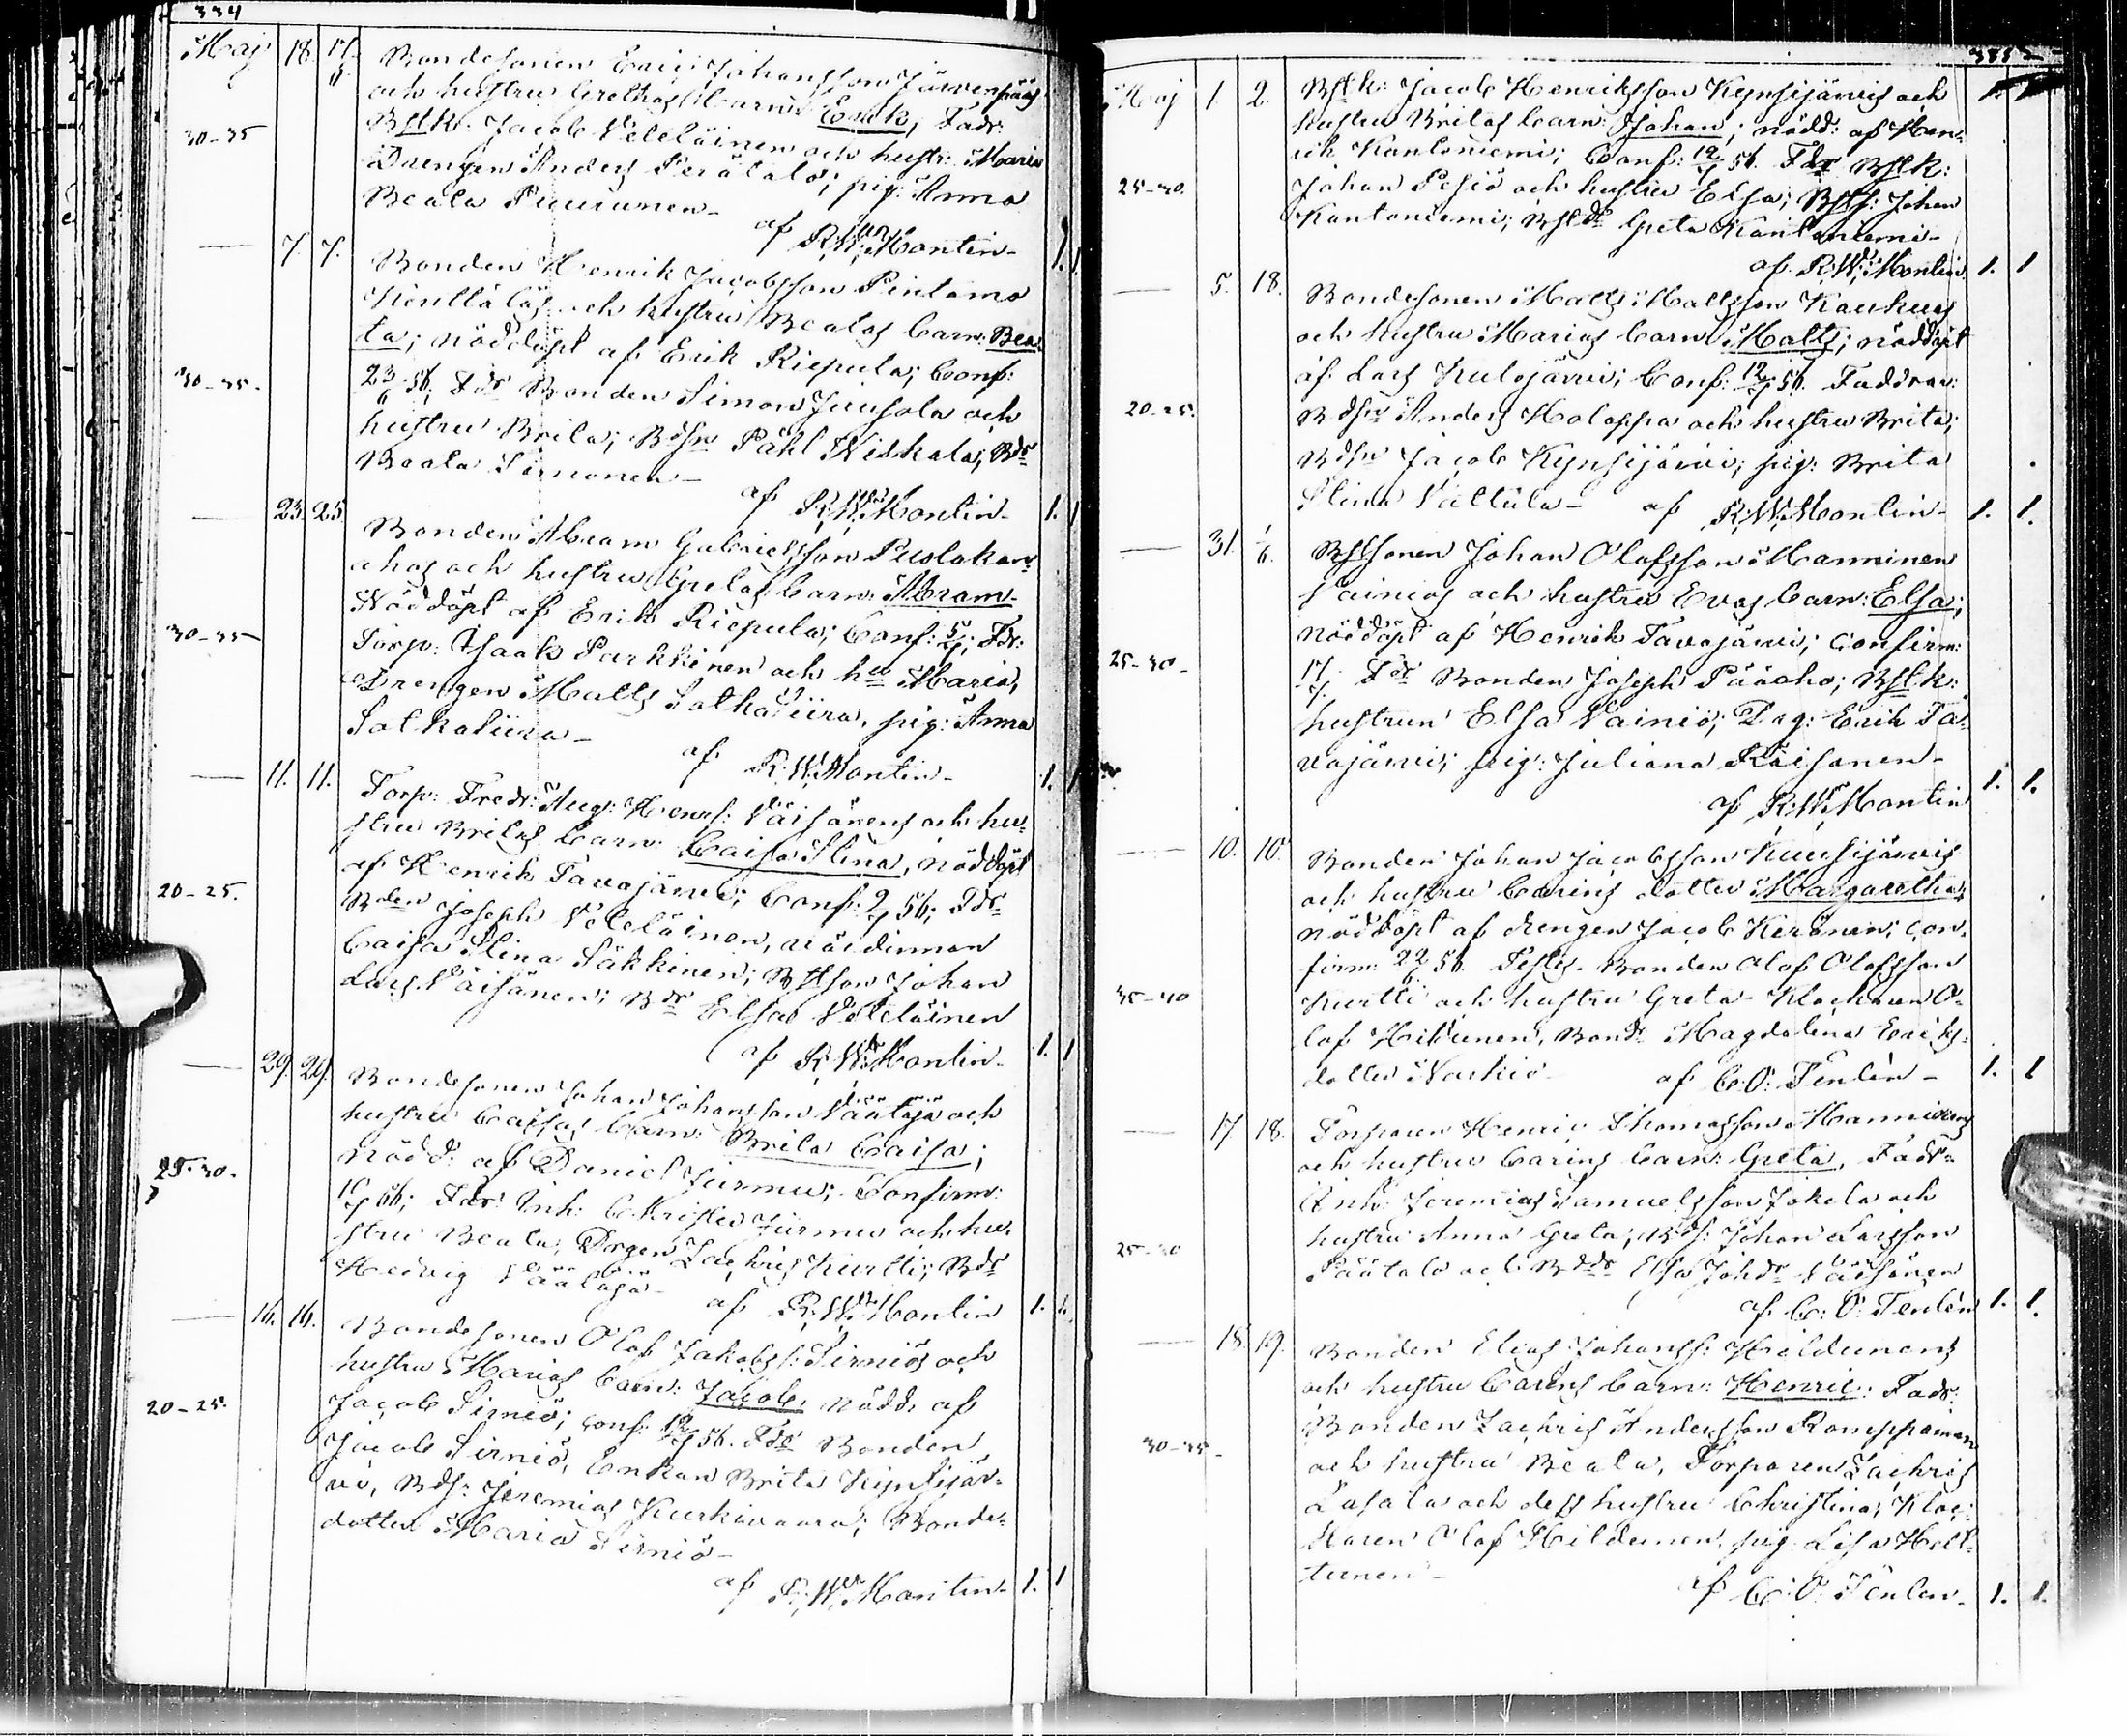 334
Maj 18. 17/6 Bondesonen Eric Johansson Järvenpääs
och hustru Grethas barn: Erik; Fadr:
30-35 Bstk: Jacob Veteläinen och hustr: Maria
Drengen Anders Perätalo; pig: Anna
Beata Puurunen-
af R: W: Montin-
7. 7. Bonden Henrik Jacobsson Pintamo
och hustru Beatas barn: Bea-
ta; nöddöpt af Erik Riepula; Conf:
30-35. 23/6 56. Fdr Bonden Simon Juusola och
hustru Brita; Bdsn Påhl Niskala; Bdr
Beata Simonen-
af R: W: Montin- 1.
23. 25. Bonden Abram Gabrielsson Puolakan-
ahos och hustru Gretas barn: Abram-
Nöddöpt af Erik Riepula; Conf: Fdr:
30-35 Torp: Isaak Parkkinen och hu Maria,
Drengen Matts Satkaliira, pig: Anna
Satkaliira-
af R. W. Montin-
11. 11. Torp: Fredr: Aug: Henrs: Väisänens och hu-
stru Britas barn: Caisa Stina, nöddöpt
af Henrik Tavajärvi; Conf: 2/7 56; Fdr
20-25. Bden Joseph Veteläinen, värdinnan
Caisa Stina Säkkinen; Bstson Johan
Lars Väisänen; Bdr Elsa Veteläinen
af R: W: Montin- 1. 1
29. 29. Bondesonen Johan Johansson Väätäjä och
hustru Caisas barn: Brita Caisa;
nödd: af Daniel Jurmu; Confirm:
25-30. 56; Fdr: Inh: Christer Jurmu och hu-
stru Beata; Drgen Zachris Kurtti; Bdr
Hedvig Väätäjä-
af R: W: Montin 1. 1.
16. 16. Bondesonen Olof Jakobs: Sirniös och
hustru Marias barn: Jacob, nödd: af
20-25. Jacob Sirniö; conf: 56. Fdr Bonden
Jacob Sirniö, Enkan Brita Kynsijär-
vi, Bds: Jeremias Kurkivaara; Bonde-
dotter Maria Sirniö-
af R: W: Montin- 1. 1
335
Maj 1. 2. Bstk: Jacob Henriksson Kynsijärvis och
hustru Britas barn: Johan; nödd: af Hen-
rik Kantoniemi; Conf: 12/7 56. Fdr Bstk:
25-30. Johan Pesiö och hustru Elsa; Bsts: Johan
Kantoniemi; Bstdr Greta Kantoniemi-
af R: W: Montin 1. 1
5. 18. Bondesonen Matts Mattsson Kaukuas
och hustru Marias barn Matts; nöddöpt
af Lars Kulojärvi; Conf: 12/7 56. Faddrar:
20-25. Bdsn Anders Holappa och hustru Brita;
Bdsn Jacob Kynsijärvi; pig: Brita
Stina Vattula- af R. W. Montin- 1. 1.
31. 1/6. Bstsonen Johan Olofsson Manninen
Vainios och hustru Evas barn: Elsa;
nöddöpt af Henrik Tavajärvi; Confirm:
25-30- 17/7. Fdr Bonden Joseph Pääaho; Bstk:
hustrun Elsa Vainio; Drg: Erik Ta-
vajärvi; pig: Juliana Räisänen-
af R: W: Montin 1. 1.
10. 10. Bonden Johan Jacobsson Kuusijärvis
och hustru Carins dotter Margaretha;
nöddöpt af drengen Jacob Keränen; con-
firm: 22/6 56. Testes. Bonden Olof Olofsson
35-40 Kurtti och hustru Greta- Klockaren O-
lof Hildunen, Bondr: Magdalena Eriks-
dotter Narkio- af C. O: Tenlén- 1. 1
17 18. Torparen Henric Thomasson Mannisens
och hustru Carins barn: Greta, Fadr-
Inh: Jeremias Samuelsson Jokela och
25-30 hustru Anna Greta; Bds: Johan Larsson
Päätalo och Bddr Elsa Johdr Väisänen
af C: O: Tenlén 1. 1.
18 19. Bonden Elias Johanss: Hildunens
och hustru Carins barn: Henric: Fadr:
Bonden Zachris Andersson Romppainen
30-35- och hustru Beata, Torparen Zachris
Lasala och dess hustru Christina; Kloc-
karen Olof Hildunen, pig: Lisa Hell-
tunen-
af C: O: Tenlen- 1. 1.